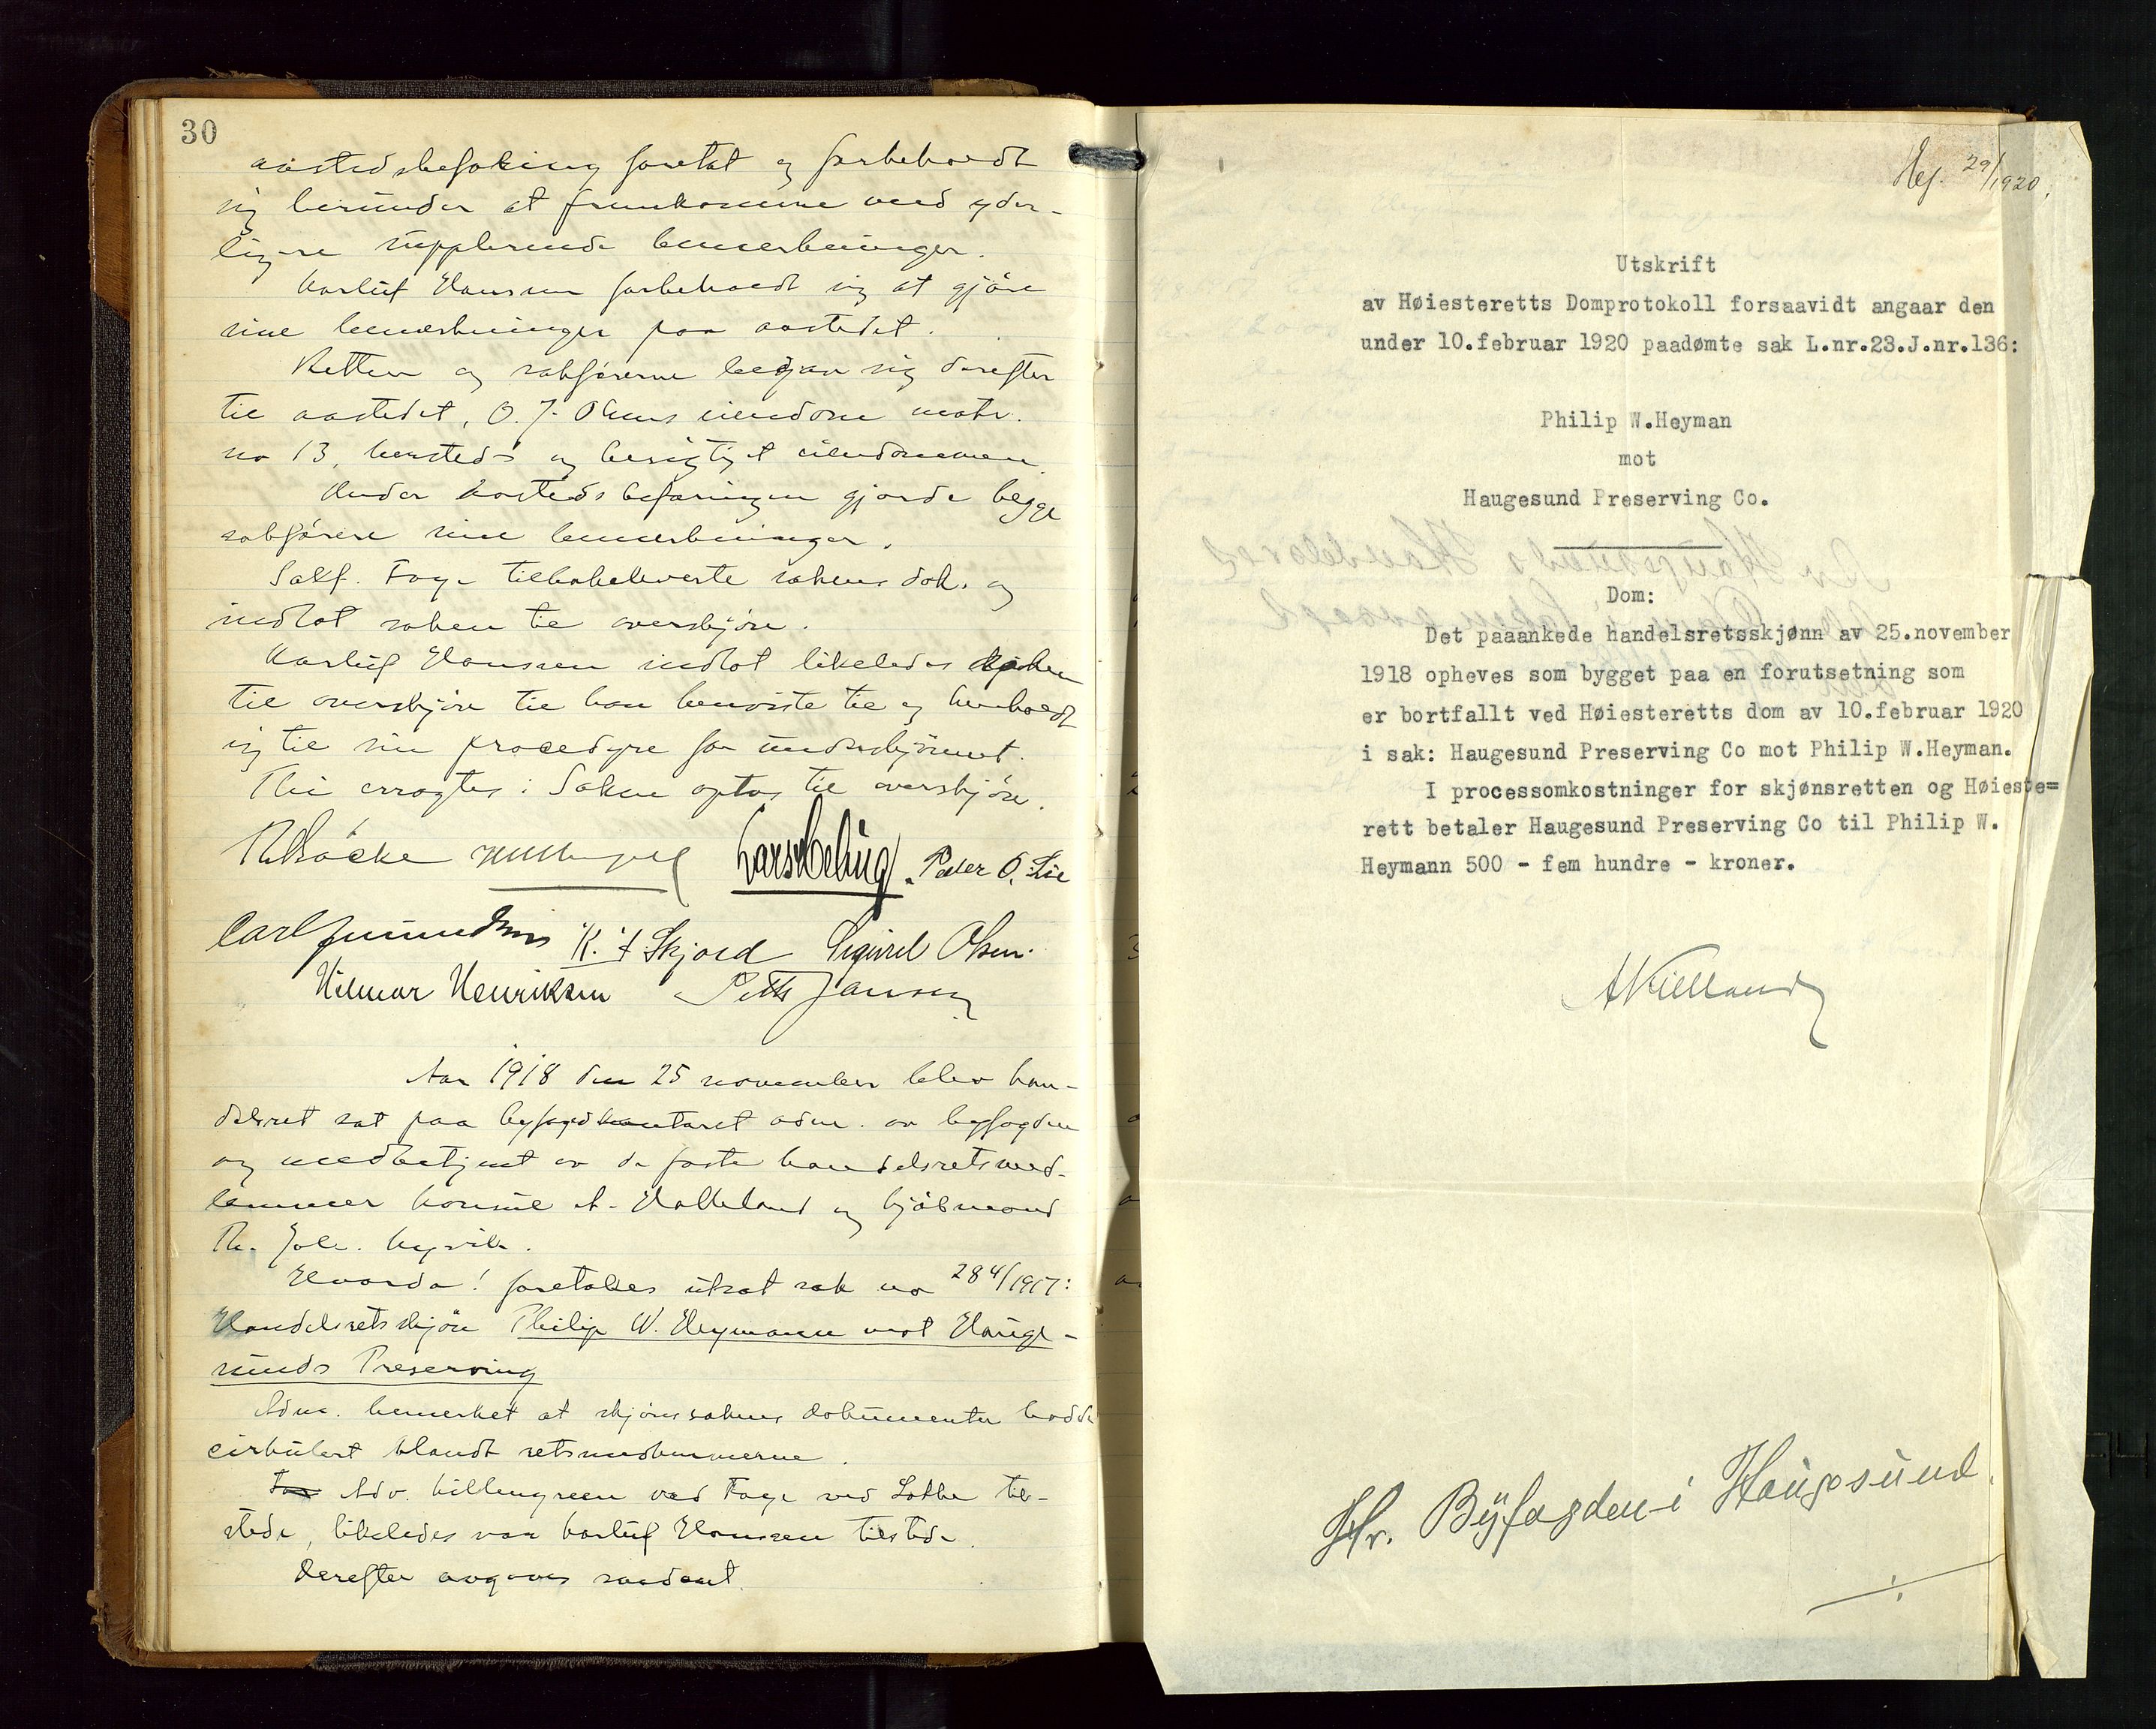 30
aastedsbefaring foretat og forbeholdt
sig herunder at fremkomme med yder-
ligere supplerende bemerkninger.
Karluf Hanssen forbeholdt sig at gjøre
sine bemerkninger paa aastedet.
Retten og sakførerne begav sig derefter
til aastedet, O. J. Olsens eiendom matr.
no 13, hersteds og besigtiget eiendommen.
Under aastedsbefaringen gjorde begge
sakførere sine bemerkninger.
Sakf. Fage tilbakeleverte sakens dok. og
indlot saken til overskjøn.
Karluf Hanssen indlot likeledes saken
til overskjøn til han henviste til og henholdt
sig til sin procedyre for underskjønnet.
Thi eragtes: Saken optas til overskjøn.
Lars Meling. Peder O. Lie
Carl K. Skjold Sigurd Olsen.
Hilmar Henriksen Peth Jansen
Aar 1918 den 25 november blev han-
delsret sat paa byfogdkontoret adm. av byfogden
og medbetjent av de faste handelsretsmed-
lemmer konsul A. Valleland og kjøbmand
Th. Joh. Køpvik.
Hvorda! foretokes utsat sak no 284/1917:
Handelsretsskjøn Philip W. Heymann mot Hauge-
sunds Preserving
Adm. bemerket at skjønssakens dokumenter hadde
cirkulert blandt retsmedlemmerne.
Adv. Killengreen ved Fage ved Lothe til-
stede, likeledes var Karluf Hanssen tilstede.
Derefter avgaves saadant
Hef. 29/1920.
Utskrift
av Høiesteretts Domprotokoll forsaavidt angaar den
under 10.februar 1920 paadømte sak L.nr.23.J.nr.136:
Philip W.Heyman
mot
Haugesund Preserving Co.
Dom:
Det paaankede handelsretsskjønn av 25.november
1918 opheves som bygget paa en forutsetning som
er bortfallt ved Høiesteretts dom av 10.februar 1920
i sak: Haugesund Preserving Co mot Philip W.Heyman.
I processomkostninger for skjønsretten og Høieste=
rett betaler Haugesund Preserving Co til Philip W.
Heymann 500 - fem hundre - kroner.
AKielland
Hr. Byfogden i Haugesund.